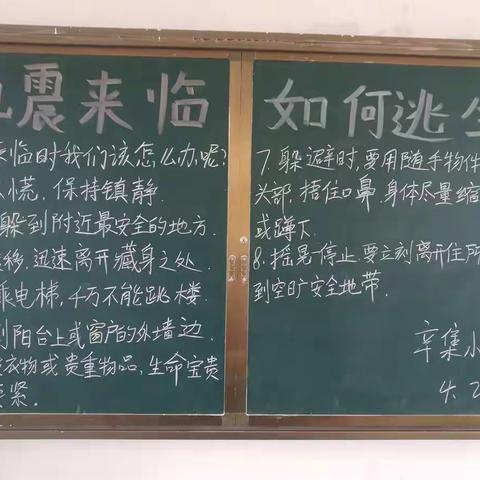 震来临 如何逃生
来临时我们该怎么办呢?
慌,保持镇静.
躲到附近最安全的地方.
移,迅速离开藏身之处.
乘电梯,千万不能跳楼.
到阳台上或窗户的外墙边.
衣物或贵重物品,生命宝贵
紧.
7.躲避时,要用随手物件
头部,捂住口鼻,身体尽量缩
或蹲下.
8.摇晃停止,要立刻离开住所
到空旷安全地带.
辛集小
4.2